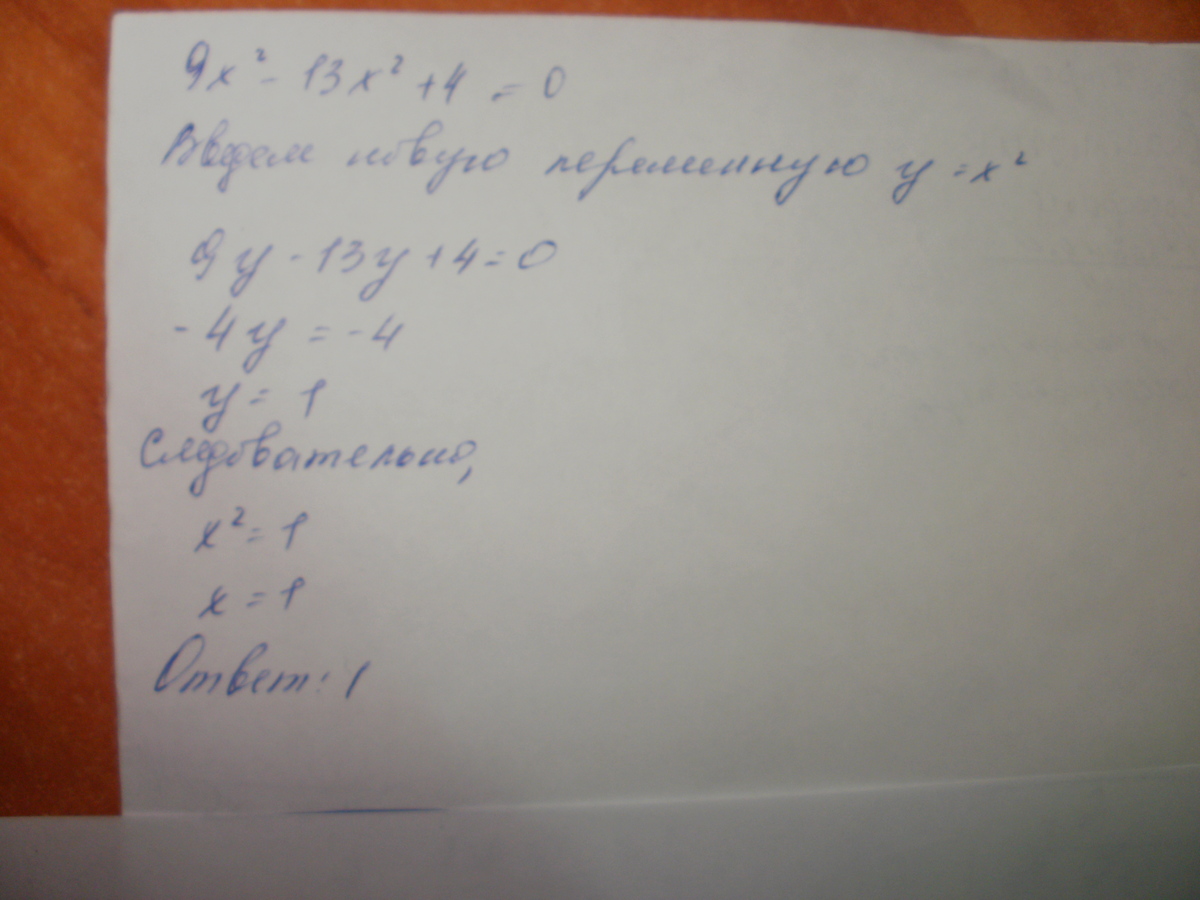 9x² - 13x² + 4 = 0
Введем новую переменную y = x²
9y - 13y + 4 = 0
- 4y = - 4
y = 1
Следовательно,
x² = 1
x = 1
Ответ: 1